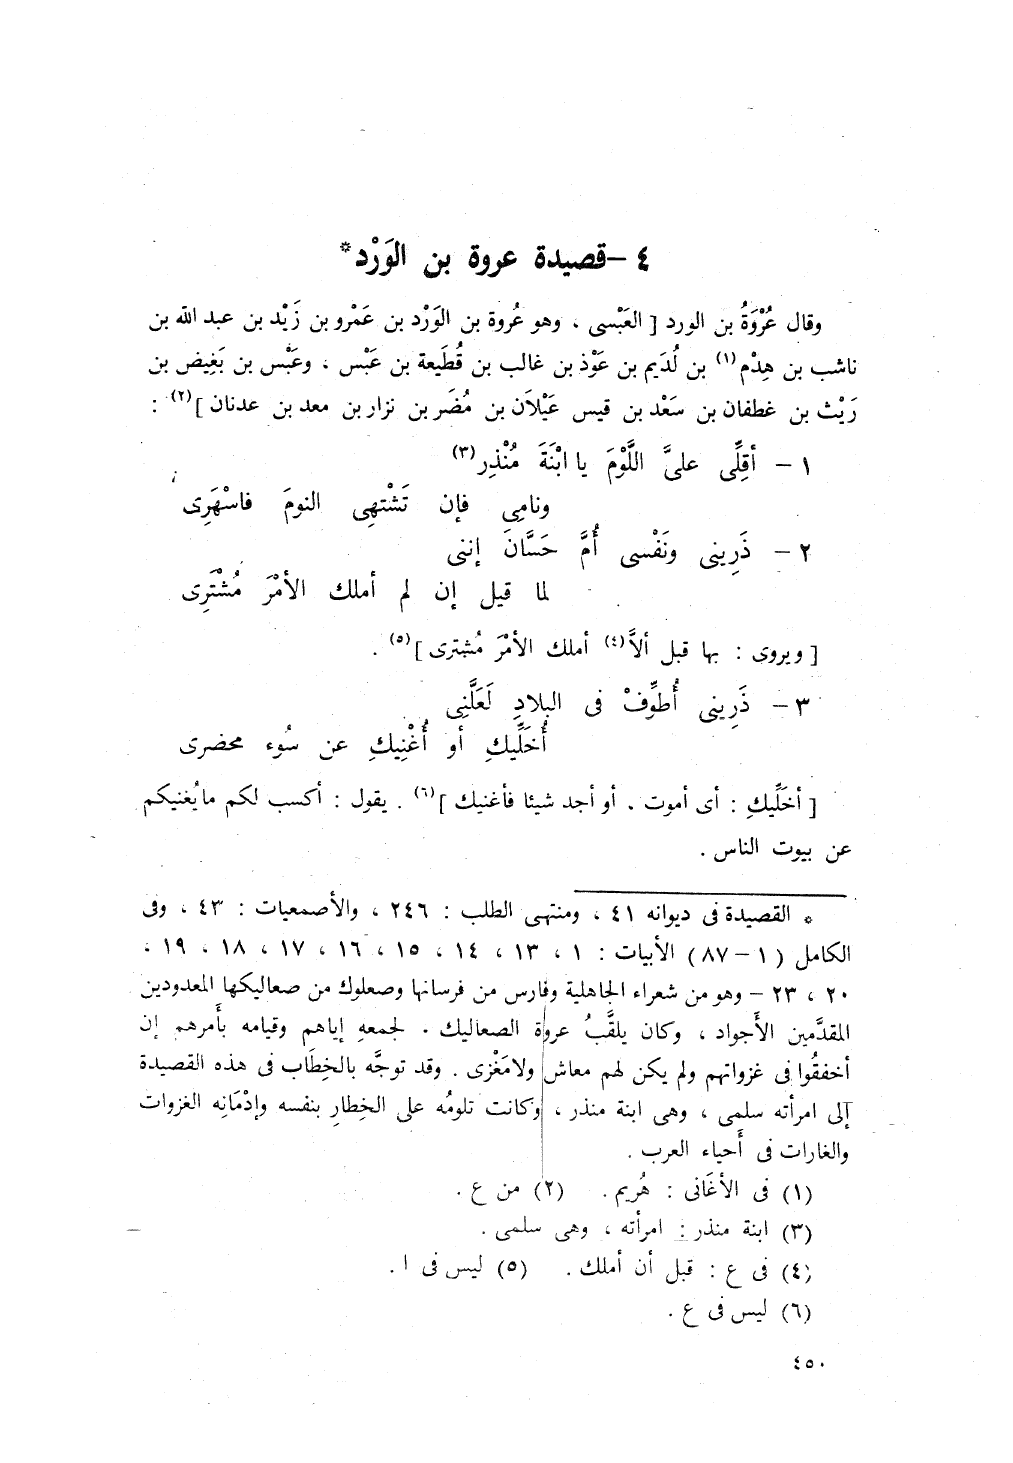 ٤ – قصيدة عروة بن الوَرْد*
وقال عُرْوَةُ بن الورد [ العَبْسى ، وهو عُروة بن الوَرْد بن عَمْرو بن زَيْد بن عبد الله بن
ناشب بن هِدْم(١) بن لُدَيم بن عَوْذ بن غالب بن قُطَيعة بن عَبْس ، وعَبْس بن بَغِيض بن
رَيْث بن غطفان بن سَعْد بن قيس عَيْلاَن بن مُضَر بن نزار بن معد بن عدنان ](٢) :
١ – أقِلِّى علىَّ اللَّوْمَ يا ابْنَةَ مُنْذِر(٣)
ونامِى فإن تَشْتهِى النومَ فاسْهَرِى
٢ – ذَرِينى ونَفْسى أُمَّ حَسَّانَ إننى
لما قيل إن لم أملك الأمْرَ مُشْتَرِى
[ ويروى : بها قبل ألاَّ(٤) أملك الأمْرَ مُشترى ](٥) .
٣ – ذَرِينى أُطوِّفْ فى البلادِ لَعَلَّنِى
أُخَلِّيكِ أو أُغْنِيكِ عن سُوء محضرى
[ أخَلِّيكِ : أى أموت ، أو أجد شيئا فأغنيك ](٦) . يقول : أكسب لكم مايُغنيكم
عن بيوت الناس .
* القصيدة فى ديوانه ٤١ ، ومنتهى الطلب : ٢٤٦ ، والأصمعيات : ٤٣ ، وفى
الكامل ( ١ – ٨٧ ) الأبيات : ١ ، ١٣ ، ١٤ ، ١٥ ، ١٦ ، ١٧ ، ١٨ ، ١٩ ،
٢٠ ، ٢٣ – وهو من شعراء الجاهلية وفارس من فرسانها وصعلوك من صعاليكها المعدودين
المقدَّمين الأَجواد ، وكان يلقَّبُ عروة الصعاليك . لجمعهِ إياهم وقيامه بأَمرهم إن
أخفقُوا فى غزواتهم ولم يكن لهم معاش ولامَغْزى . وقد توجَّه بالخِطَاب فى هذه القصيدة
إلى امرأته سلمى ، وهى ابنة منذر ، وكانت تلومُه على الخِطارِ بنفسه وإدْمَانِه الغزوات
والغارات فى أَحياء العرب .
(١) فى الأغَانى : هُريم . (٢) من ع .
(٣) ابنة منذر : امرأته ، وهى سلمى .
(٤) فى ع : قبل أن أملك . (٥) ليس فى ا .
(٦) ليس فى ع .
٤٥٠